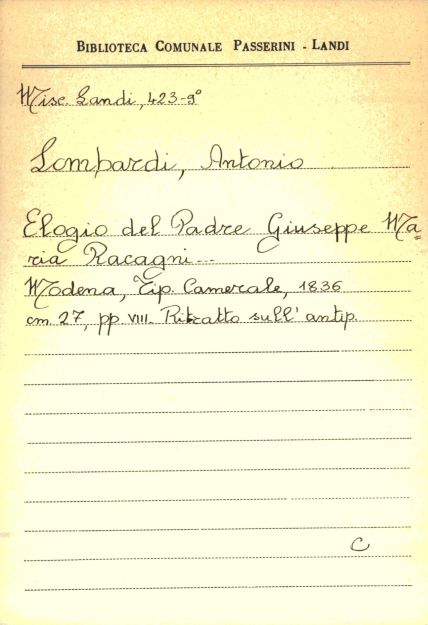 BIBLIOTECA COMUNALE PASSERINI - LANDI
Misc. Landi, 423-9°
Lombardi, Antonio
Elogio del Padre Giuseppe Ma=
ria Racagni...
Modena, Tip. Camerale, 1836
cm. 27, pp. VIII. Ritratto sull' antip.
C